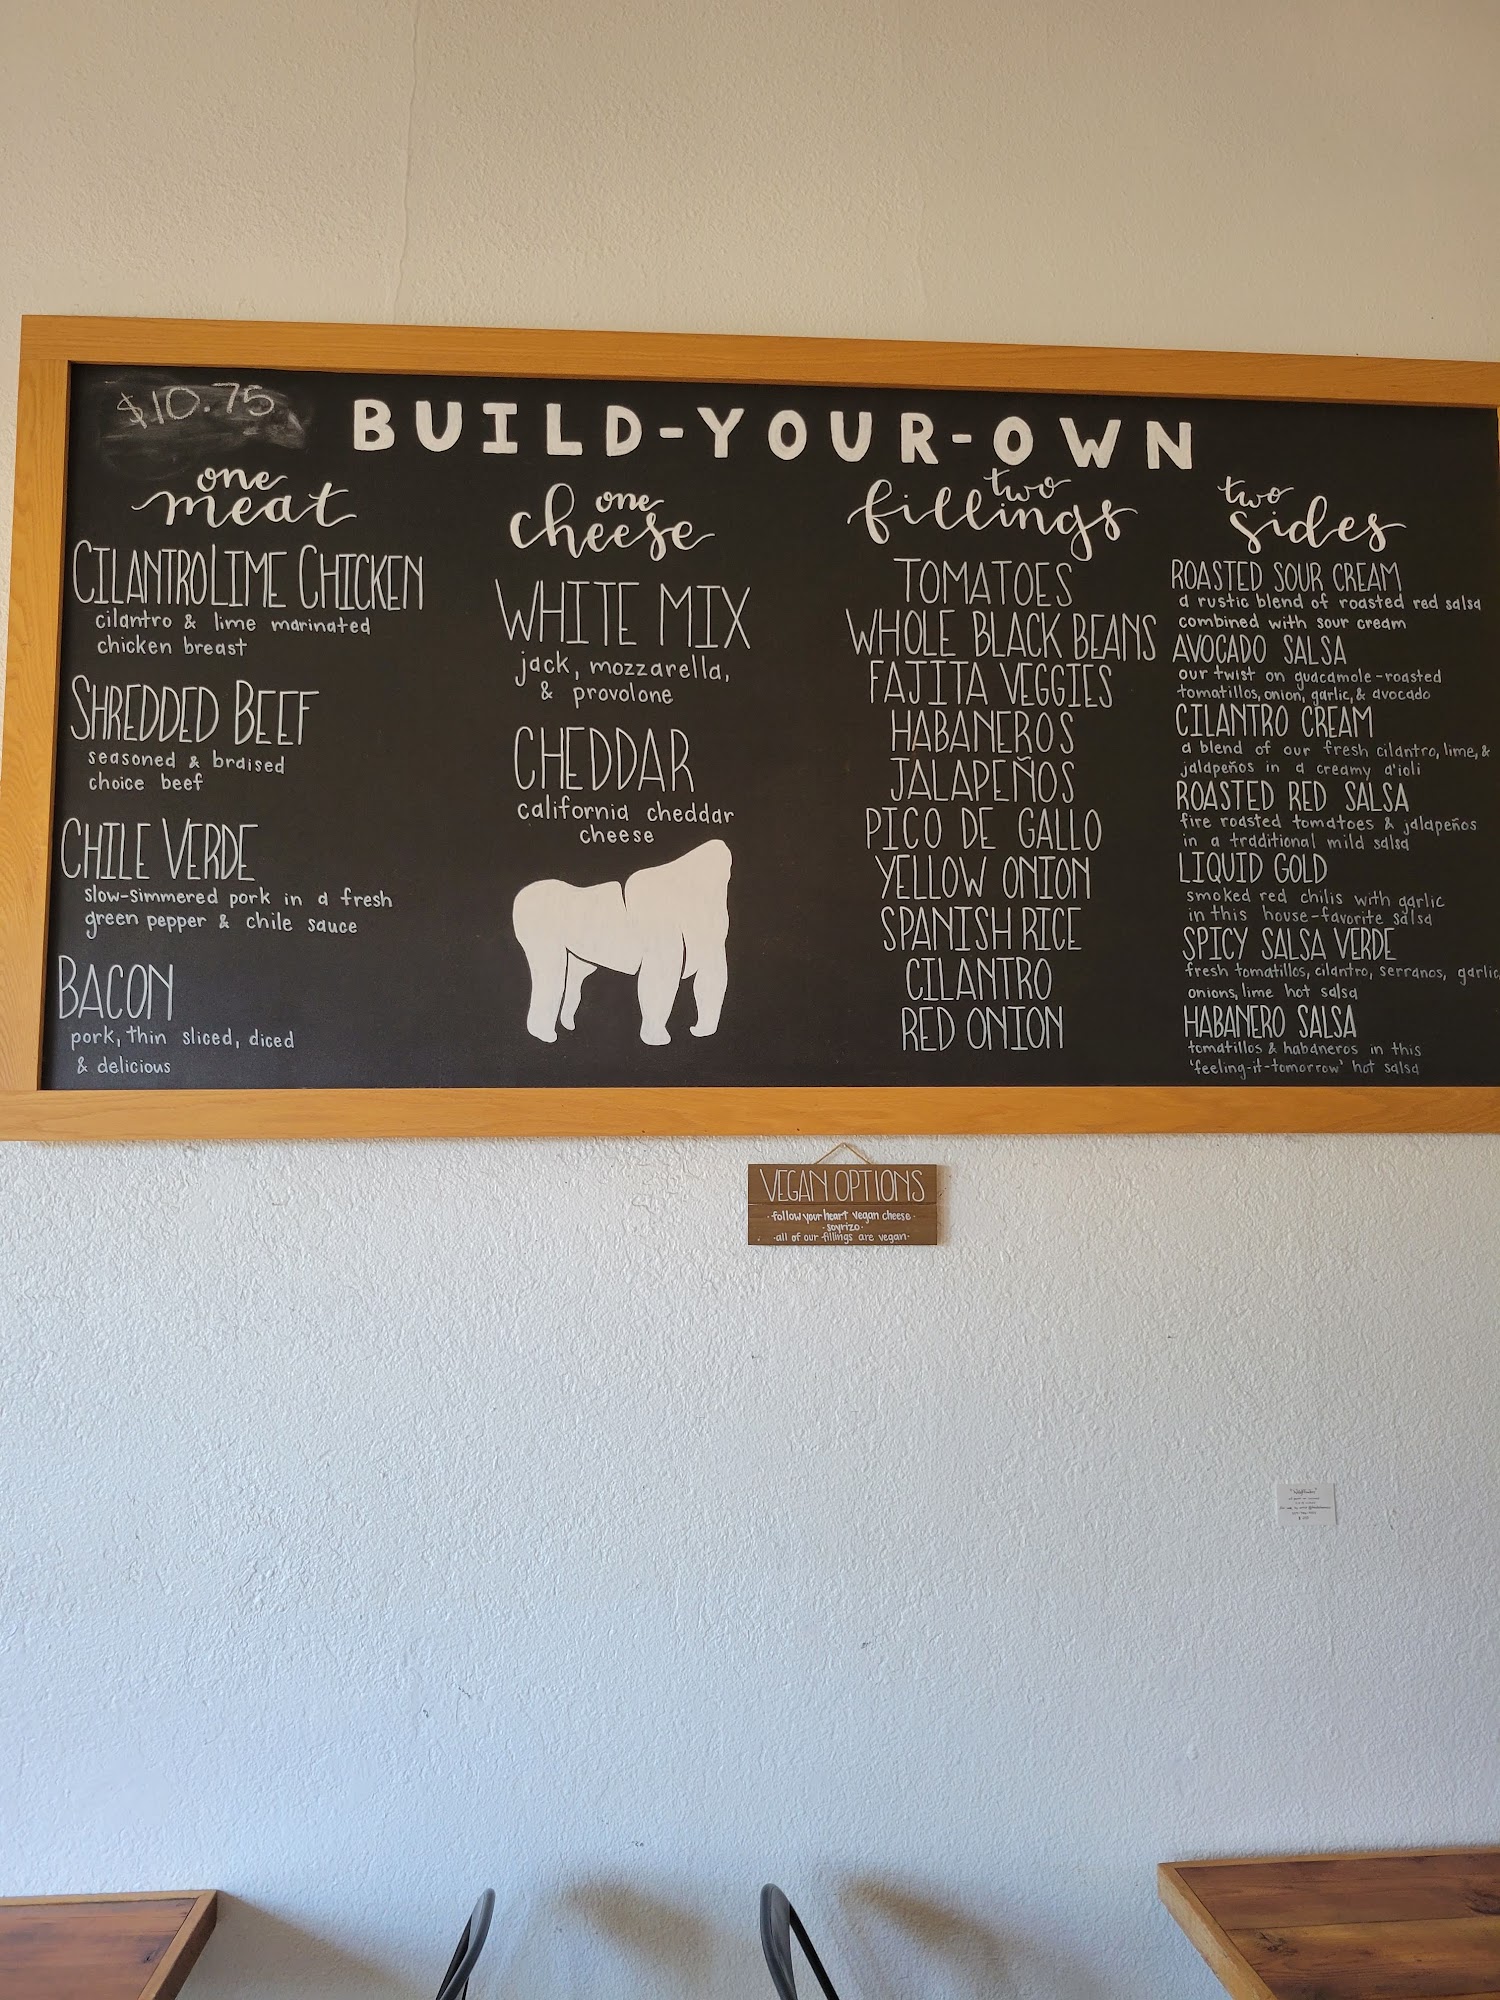 $10.75
BUILD-YOUR-OWN
one
meat
CILANTRO LIME CHICKEN
cilantro & lime marinated
chicken breast
SHREDDED BEEF
seasoned & braised
choice beef
CHILE VERDE
slow-simmered pork in a fresh
green pepper & chile sauce
BACON
pork, thin sliced, diced
& delicious
one
cheese
WHITE MIX
jack, mozzarella,
& provolone
CHEDDAR
california cheddar
cheese
two
fillings
TOMATOES
WHOLE BLACK BEANS
FAJITA VEGGIES
HABANEROS
JALAPEÑOS
PICO DE GALLO
YELLOW ONION
SPANISH RICE
CILANTRO
RED ONION
two
sides
ROASTED SOUR CREAM
a rustic blend of roasted red salsa
combined with sour cream
AVOCADO SALSA
our twist on guacamole-roasted
tomatillos, onion, garlic, & avocado
CILANTRO CREAM
a blend of our fresh cilantro, lime, &
jalapeños in a creamy a'ioli
ROASTED RED SALSA
fire roasted tomatoes & jalapeños
in a traditional mild salsa
LIQUID GOLD
smoked red chilis with garlic
in this house-favorite salsa
SPICY SALSA VERDE
fresh tomatillos, cilantro, serranos, garlic
onions, lime hot salsa
HABANERO SALSA
tomatillos & habaneros in this
'feeling-it-tomorrow' hot salsa
VEGAN OPTIONS
·follow your heart vegan cheese·
·soyrizo·
·all of our fillings are vegan·